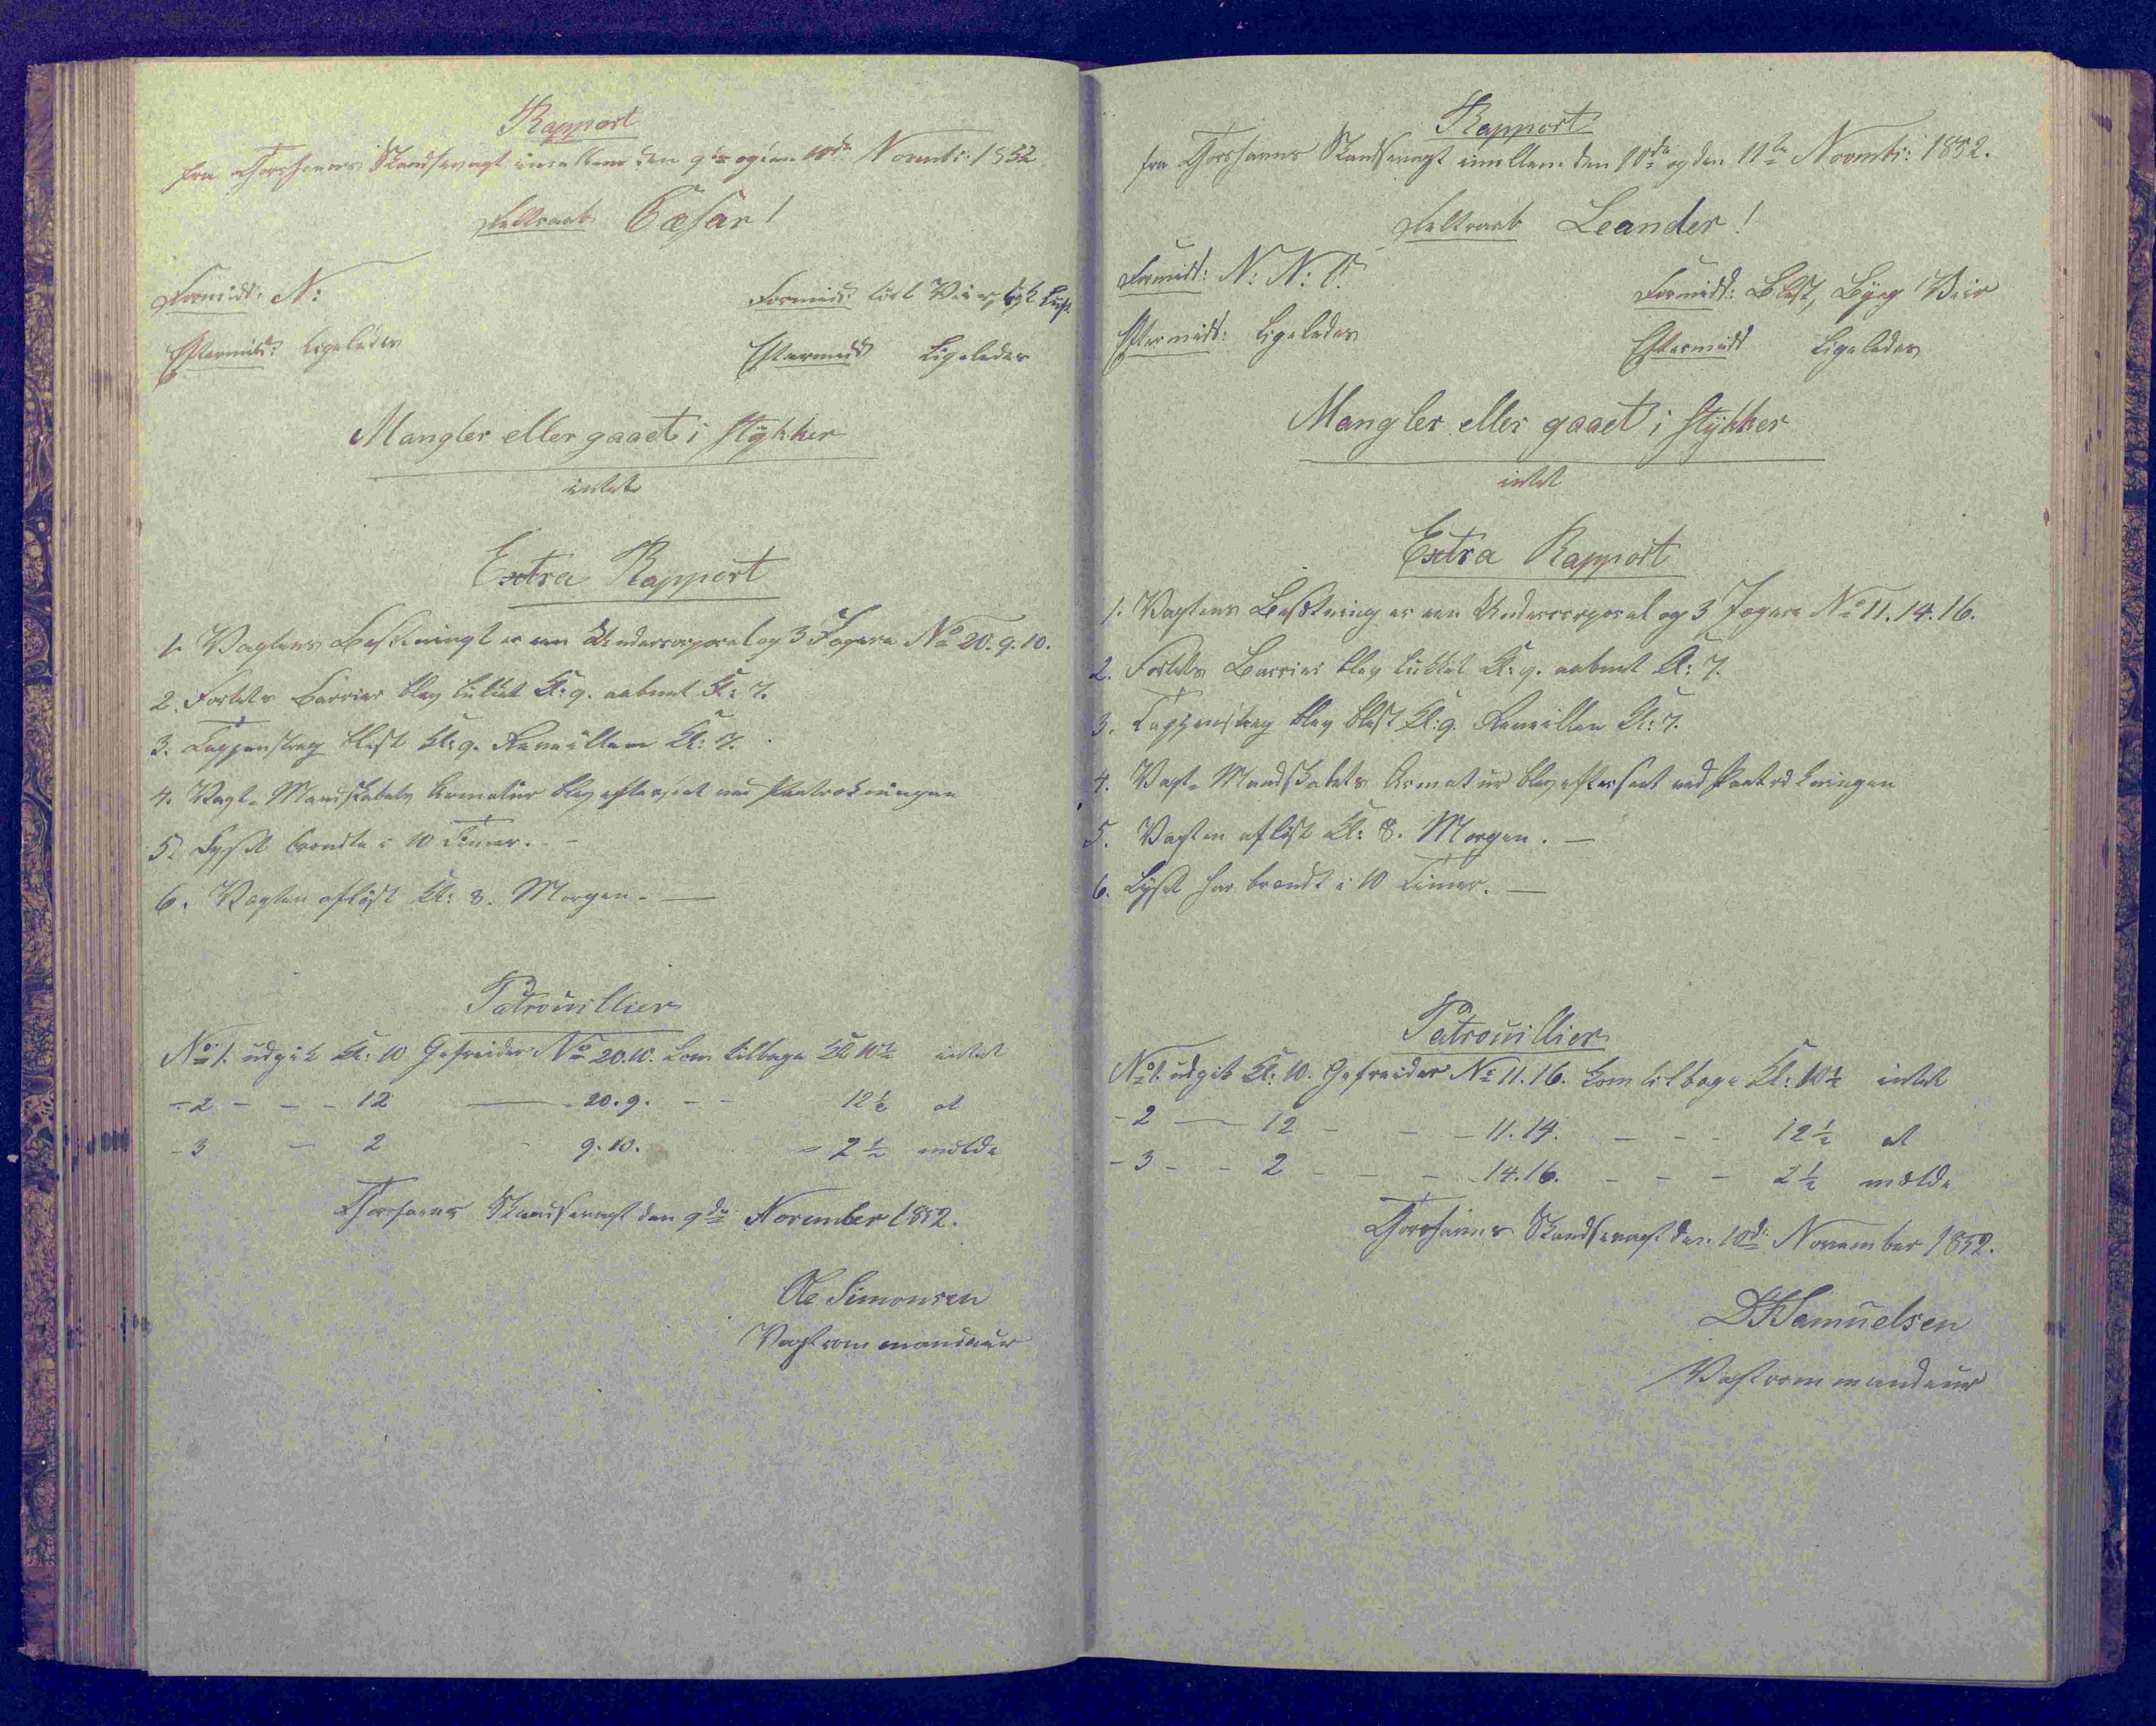 Rapport
fra Thorshavns Skandsevagt imellem den 9de og den 10de Novembr: 1852
Feltraab Cæsar!
Formidd: N:
Formidd: tört Veir, tyk Luft
Eftermidd: Ligeledes
Eftermidd Ligeledes
Mangler eller gaaet i Stykker
intet
Extra Rapport
1. Vagtens Besætning er een Undercorporal og 3 Jægere No 20. 9. 10.
2. Fortets Barrier blev lukket Kl: 9. aabnet Kl: 7.
3. Tappenstreg blæst Kl: 9. Reveillen Kl: 7.
4. Vagt-Mandskabets Armatur blev efterseet ved Paatrækningen
5. Lyset brændte i 10 Timer. -
6. Vagten aflöst Kl: 8. Morgen. —
Patrouillier
No 1. udgik Kl: 10 Gefreider No 20. 10. kom tilbage Kl 10½ intet
- 2 - - - 12 — 20. 9. - - 12½ at
- 3 - 2 - 9. 10. - 2½ melde
Thorshavns Skandsevagt den 9de November 1852.
Ole Simonsen
Vagtcommandeur
Rapport
fra Thorshavns Skandsevagt imellem den 10de og den 11te Novembr: 1852.
Feltraab Leander!
Formidd: N: N: O.
Formidd: Blæst, Byeg Veir
Eftermidd: Ligeledes
Eftermidd Ligeledes
Mangler eller gaaet i Stykker
intet
Extra Rapport
1. Vagtens Besætning er een Undercorporal og 3 Jægere No 11. 14. 16.
2. Fortets Barrier blev lukket Kl: 9. aabnet Kl: 7.
3. Tappenstreg blev blæst Kl: 9. Reveillen Kl: 7.
4. Vagt-Mandskabets Armatur blev efterseet ved Paatrækningen
5. Vagten aflöst Kl: 8. Morgen. —
6. Lyset har brændt i 10 Timer. —
Patrouillier
No 1. udgik Kl: 10. Gefreider No 11. 16. kom tilbage Kl: 10½ intet
- 2 — 12 - - - 11. 14. - - - 12½ at
- 3 - - 2 - - - 14. 16. - - - 2½ melde
Thorshavns Skandsevagt den 10de November 1852.
Samuelsen
Vagtcommandeur